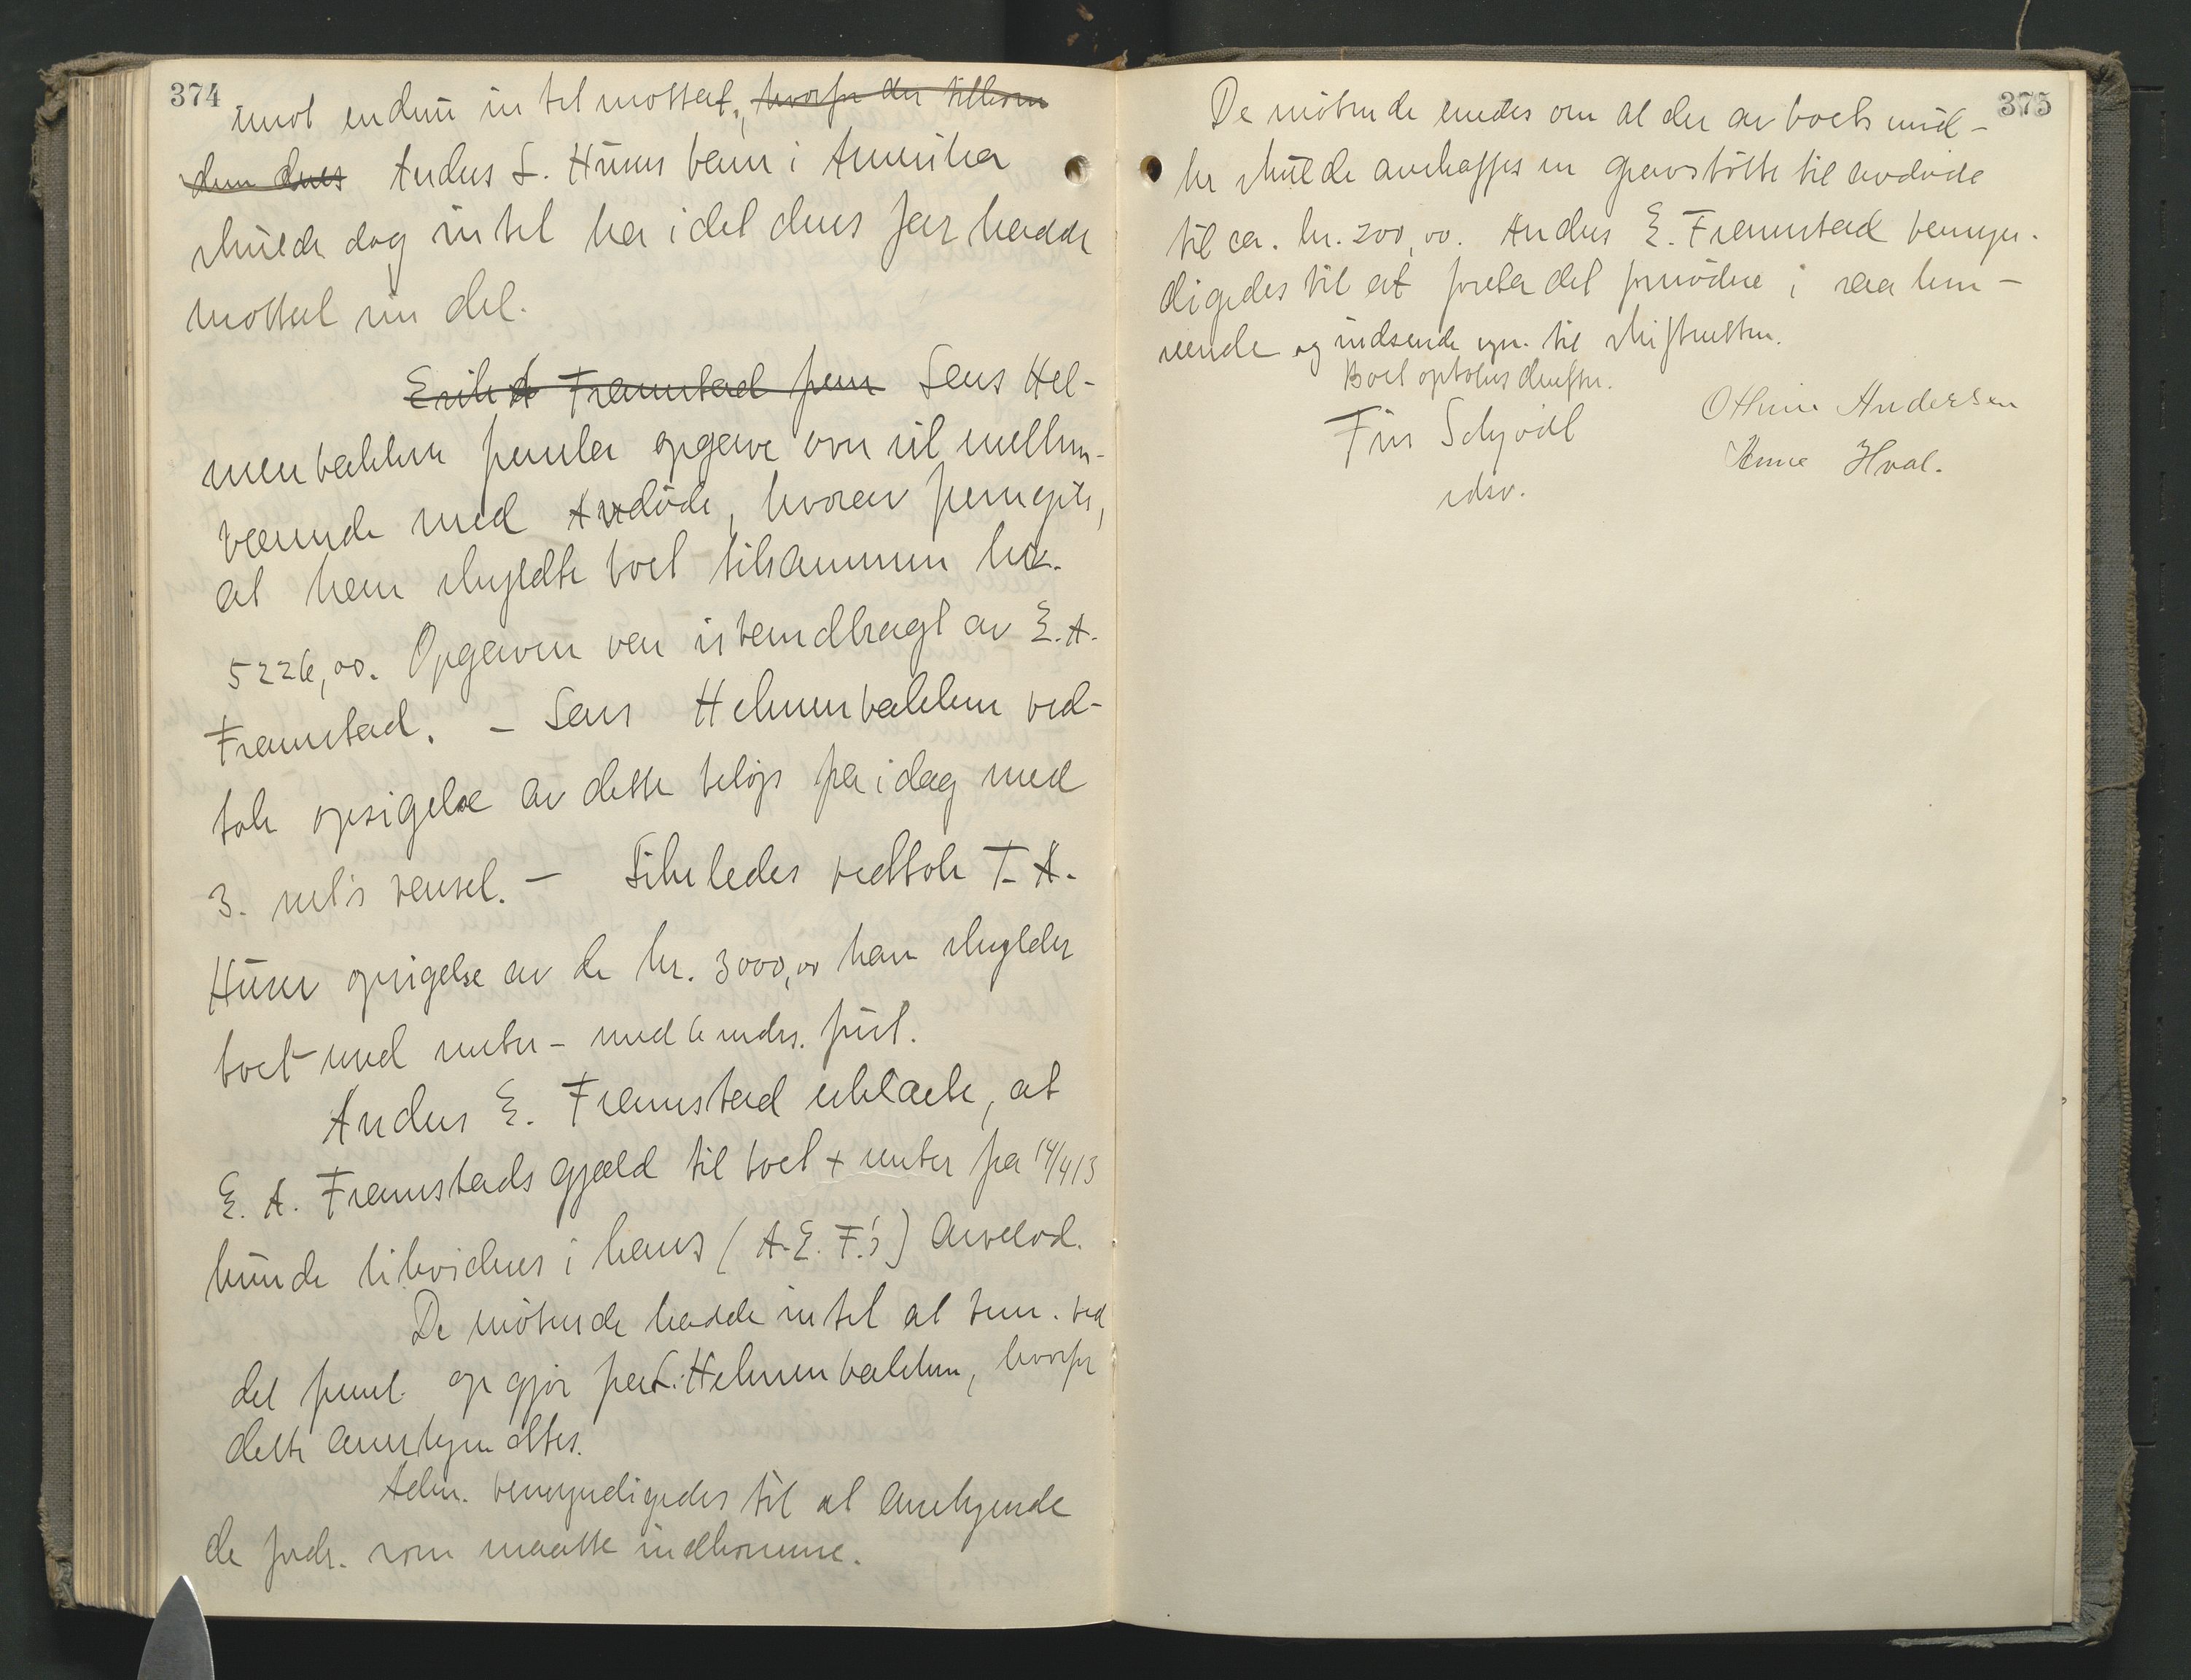 374
imot endnu intet mottat, hvorfor der tilkom
dem deres Anders L. Huses barn i Amerika
skulde dog intet ha idet deres far hadde
mottat sin del.
Erik A Framstad frem Lars Hel-
menbakken fremla opgave over sit mellem-
værende med Avdøde, hvorav fremgik,
at han skyldte boet tilsammen kr.
5226,00. Opgaven var istandbragt av E. A.
Framstad. – Lars Helmenbakken ved-
tok opsigelse av dette beløp fra idag med
3. mds varsel. – Likeledes vedtok T. A.
Huser opsigelse av de kr. 3000,00 han skylder
boet – med renter – med 6 mdrs. frist.
Anders E. Framstad erklærte, at
E. A. Framstads gjæld til boet + renter fra 14/4 13
kunde likvideres i hans (A. E. F.'s) arvelod.
De møtende hadde intet at bem. ved
det freml. opgjør fra L. Helmenbakken, hvorfor
dette anerkjendtes.
Adm. bemyndigedes til at anerkjende
de fordr. som maatte indkomme.
375
De møtende enedes om at der av boets mid-
ler skulde anskaffes en gravstøtte til avdøde
til ca. kr. 200,00. Anders E. Framstad bemyn-
digedes til at foreta det fornødne i saa hen-
seende og indsende regn. til skifteretten.
Boet optokes derefter.
Finn Schjødt
edsv.
Othine Andersen
Anne Hval.